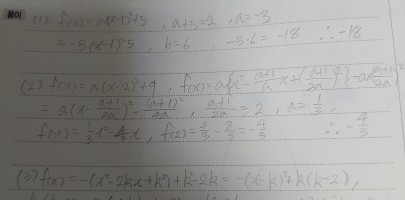 풀이 (1) f(x)=a(x-1)²+5, a+5=2, a=-3
=-3(x-1)²5, b=6, -3·6=-18 ∴-18
(2) f(x)=a(x-2)²+9, f(x)=a{x²-\frac{a+1}{a}x+(\frac{a+1}{2a})²}-a×(\frac{a+1}{2a})²
=a(x-\frac{a+1}{2a})²-\frac{(a+1)²}{4a}, \frac{a+1}{2a}=2, a=\frac{1}{3},
f(x)=\frac{1}{3}x²-\frac{4}{3}x, f(2)=\frac{4}{3}-\frac{8}{3}=-\frac{4}{3} ∴-\frac{4}{3}
(3) f(x)=-(x²-2kx+k²)+k²-2k=-(x-k)²+k(k-2),